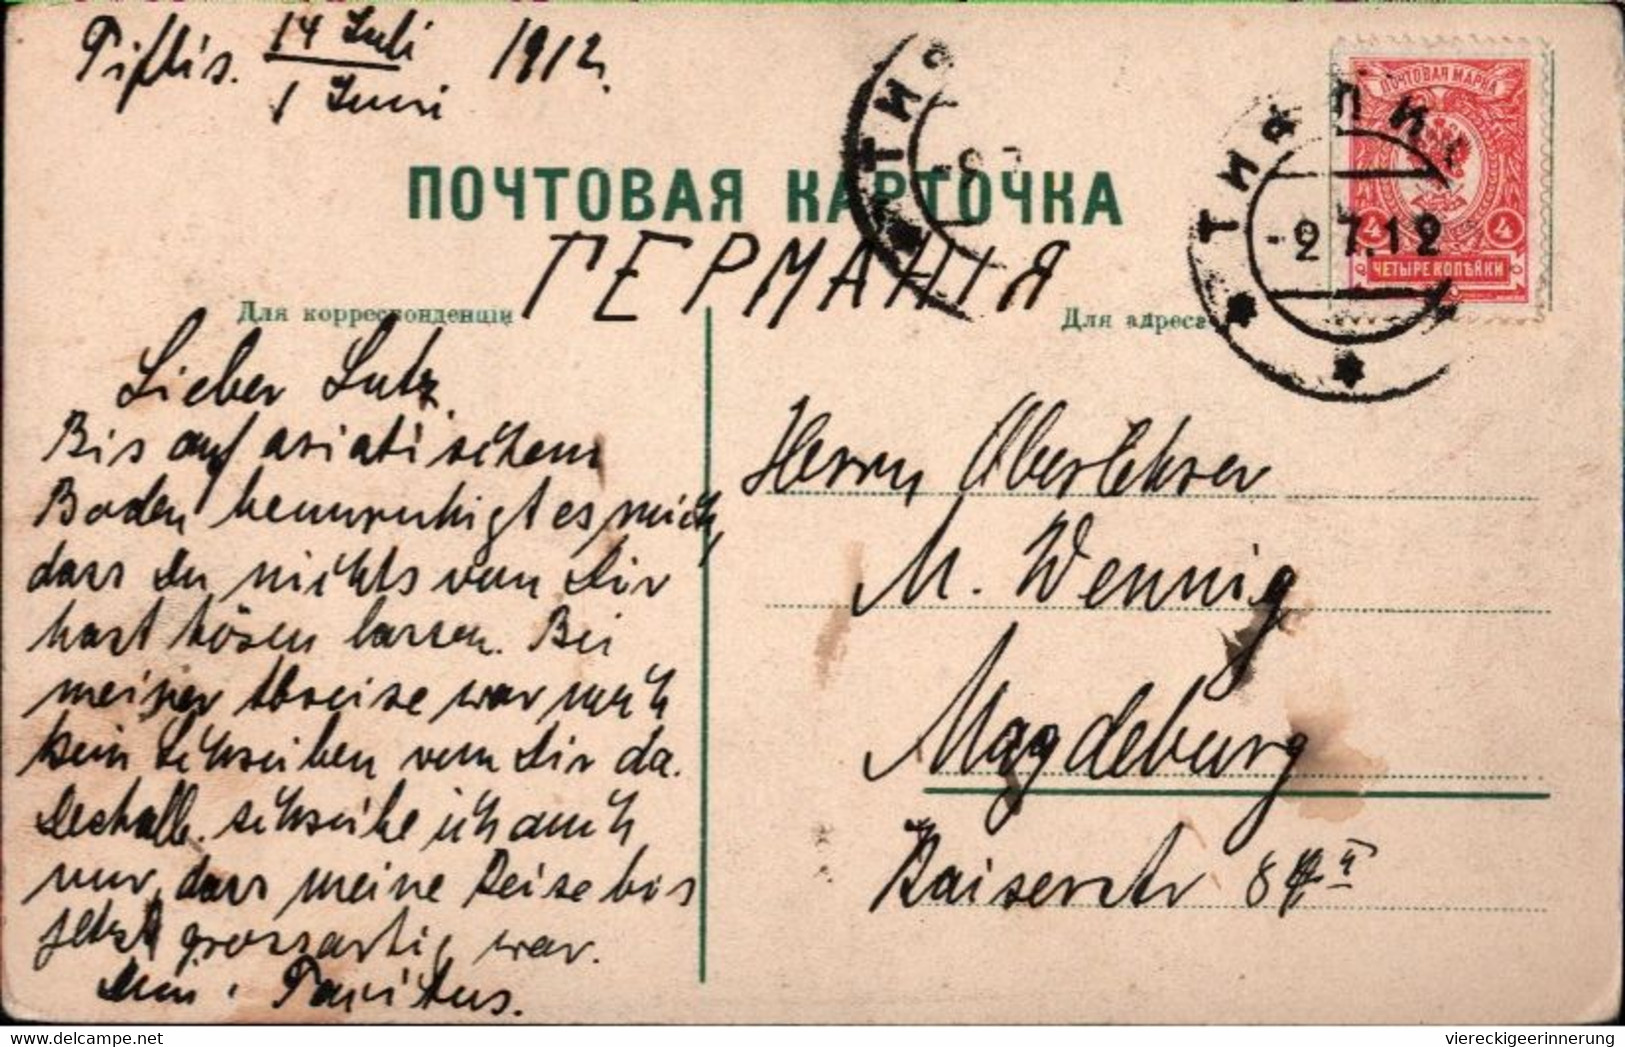 Tiflis. 14 Juli 1912.
1 Juni
ПОЧТОВАЯ МАРКА
4 4
ЧЕТЫРЕ КОПѢЙКИ
ТИФЛИС
-2 7.12
ТИФ
ПОЧТОВАЯ КАРТОЧКА
ГЕРМАНІЯ
Для корреспонденціи
Для адреса
Lieber Lutz.
Bis auf asiatischem
Boden beunruhigt es mich,
dass Du nichts von Dir
hast hösen lassen. Bei
meiner Abreise war noch
kein Schreiben von Dir da.
Deshalb schreibe ich auch
nur, dass meine Reise bis
jetzt grossartig war.
Dein
Herrn Oberlehrer
M. Wennig
Magdeburg
Kaiserstr
viereckigeerinnerung